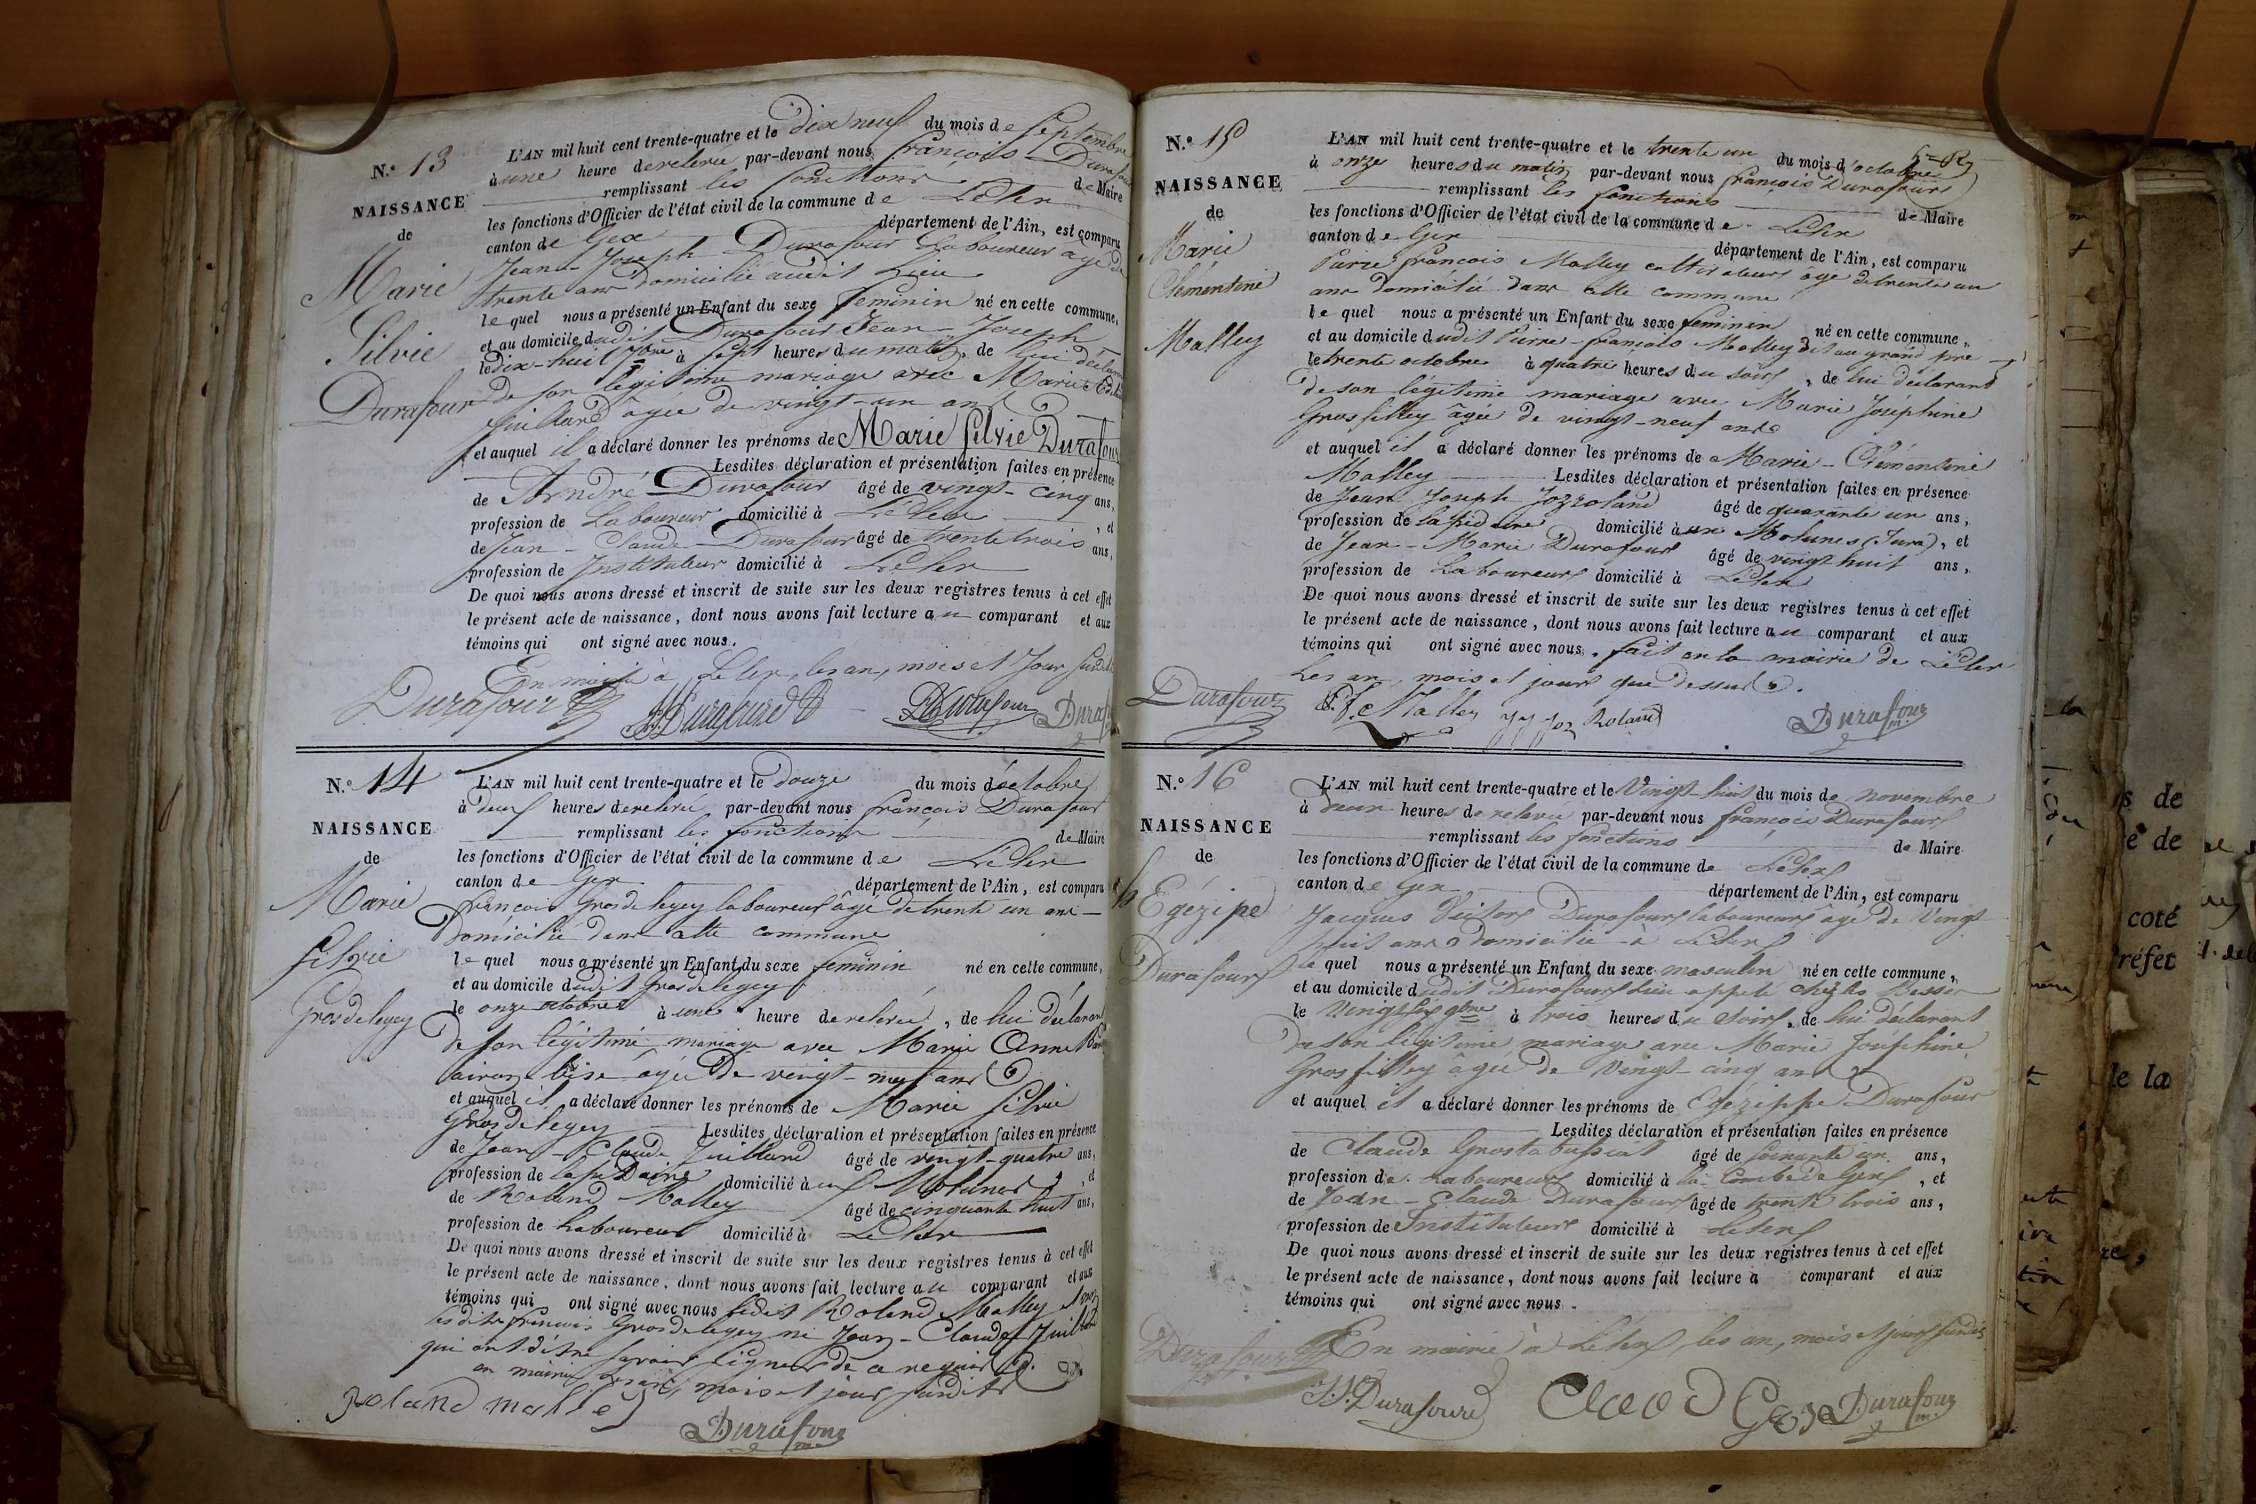 N.º 13
NAISSANCE
de
Marie
Silvie
Durafour
L'AN mil huit cent trente-quatre et le dix neuf du mois de Septembre
à une heure de relevée par-devant nous François Durafour
remplissant les fonctions de Maire
les fonctions d'Officier de l'état civil de la commune de Lélex
canton de Gex département de l'Ain, est comparu
Jean-Joseph Durafour Laboureur âgé de
trente ans domicilié audit Lieu
le quel nous a présenté un Enfant du sexe féminin né en cette commune,
et au domicile dudit Durafour Jean-Joseph
le dix-huit 7bre à sept heures du matin, de lui déclarant
de son légitime mariage avec Marie
Juilland âgée de vingt-un ans
et auquel il a déclaré donner les prénoms de Marie Silvie Durafour
Lesdites déclaration et présentation faites en présence
de André Durafour âgé de vingt-cinq ans,
profession de Laboureur domicilié à Lélex, et
de Jean-Claude Durafour âgé de trente trois ans,
profession de Instituteur domicilié à Lélex
De quoi nous avons dressé et inscrit de suite sur les deux registres tenus à cet effet
le présent acte de naissance, dont nous avons fait lecture au comparant et aux
témoins qui ont signé avec nous.
En mairie à Lélex, les an, mois et jour susdits
Durafour Durafour Durafour
N.º 14
NAISSANCE
de
Marie
Silvie
Grosdelegey
L'AN mil huit cent trente-quatre et le douze du mois d'octobre
à deux heures de relevée par-devant nous françois Durafour
remplissant les fonctions de Maire
les fonctions d'Officier de l'état civil de la commune de Lélex
canton de Gex département de l'Ain, est comparu
françois Grosdelegey laboureur âgé de trente un ans
domicilié dans cette commune
le quel nous a présenté un Enfant du sexe féminin né en cette commune,
et au domicile dudit Grosdelegey
le onze octobre à une heure de relevée, de lui déclarant
de son légitime mariage avec Marie Anne
âgée de vingt-neuf ans
et auquel il a déclaré donner les prénoms de Marie Silvie
Grosdelegey Lesdites déclaration et présentation faites en présence
de Jean-Claude Juilland âgé de vingt-quatre ans,
profession de lapidaire domicilié à Molunes, et
de Roland Malley âgé de cinquante huit ans,
profession de Laboureur domicilié à Lélex
De quoi nous avons dressé et inscrit de suite sur les deux registres tenus à cet effet
le présent acte de naissance, dont nous avons fait lecture au comparant et aux
témoins qui ont signé avec nous ledit Roland Malley
lesdits françois Grosdelegey ni Jean-Claude Juilland
qui ont dit ne savoir signer de ce requis
en mairie les an, mois et jour susdits
Roland malley
Durafour
N.º 15
NAISSANCE
de
Marie
Clémentine
Malley
L'AN mil huit cent trente-quatre et le trente un du mois d'octobre
à onze heures du matin par-devant nous françois Durafour
remplissant les fonctions de Maire
les fonctions d'Officier de l'état civil de la commune de Lélex
canton de Gex département de l'Ain, est comparu
Pierre françois Malley cultivateur âgé de trente un
ans domicilié dans cette commune
le quel nous a présenté un Enfant du sexe féminin né en cette commune,
et au domicile dudit Pierre-françois Malley dit au grand pré
le trente octobre à quatre heures du soir, de lui déclarant
de son légitime mariage avec Marie Joséphine
Grosfilley âgée de vingt-neuf ans
et auquel il a déclaré donner les prénoms de Marie-Clémentine
Malley Lesdites déclaration et présentation faites en présence
de Jean Joseph Jozroland âgé de quarante un ans,
profession de lapidaire domicilié à Molunes (Jura), et
de Jean-Marie Durafour âgé de vingt huit ans,
profession de Laboureur domicilié à Lélex
De quoi nous avons dressé et inscrit de suite sur les deux registres tenus à cet effet
le présent acte de naissance, dont nous avons fait lecture au comparant et aux
témoins qui ont signé avec nous, fait en la mairie de Lélex
les an, mois et jour que dessus.
Durafour P. f. Malley J J Joz Roland Durafour
N.º 16
NAISSANCE
de
Egézipe
Durafour
L'AN mil huit cent trente-quatre et le Vingt-huit du mois de novembre
à deux heures de relevée par-devant nous françois Durafour
remplissant les fonctions de Maire
les fonctions d'Officier de l'état civil de la commune de Lélex
canton de Gex département de l'Ain, est comparu
Jacques Victor Durafour laboureur âgé de Vingt
huit ans domicilié à Lélex
le quel nous a présenté un Enfant du sexe masculin né en cette commune,
et au domicile dudit Durafour lieu appelé
le Vingt six 9bre à trois heures du soir, de lui déclarant
de son légitime mariage avec Marie Joséphine
Grosfilley âgée de Vingt-cinq ans
et auquel il a déclaré donner les prénoms de Egézippe Durafour
Lesdites déclaration et présentation faites en présence
de Claude Grostabussiat âgé de soixante un ans,
profession de Laboureur domicilié à la Combe de Gex, et
de Jean-Claude Durafour âgé de trente trois ans,
profession de Instituteur domicilié à Lélex
De quoi nous avons dressé et inscrit de suite sur les deux registres tenus à cet effet
le présent acte de naissance, dont nous avons fait lecture à comparant et aux
témoins qui ont signé avec nous.
En mairie à Lélex, les an, mois et jour susdits
Durafour
Durafour Claud Durafour